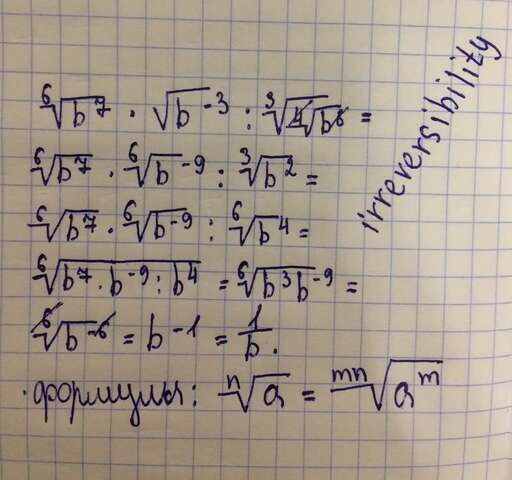 ⁶√b⁷ · √b⁻³ : ³√⁴√b⁸ =
⁶√b⁷ · ⁶√b⁻⁹ : ³√b² =
⁶√b⁷ · ⁶√b⁻⁹ : ⁶√b⁴ =
⁶√(b⁷ · b⁻⁹ : b⁴) = ⁶√(b³b⁻⁹) =
⁶√b⁻⁶ = b⁻¹ = 1/b.
формулы: ⁿ√a = ᵐⁿ√aᵐ
irreversibility